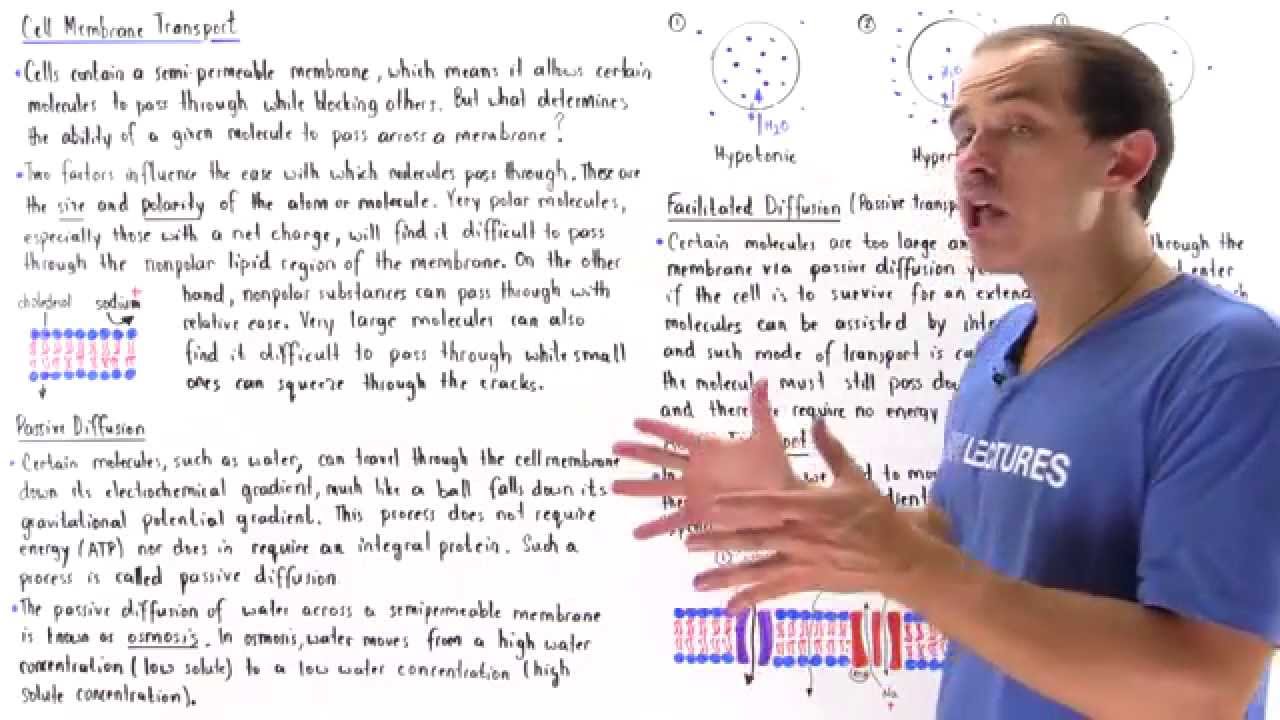 Cell Membrane Transport
• Cells contain a semi-permeable membrane, which means it allows certain
molecules to pass through while blocking others. But what determines
the ability of a given molecule to pass across a membrane?
• Two factors influence the ease with which molecules pass through. These are
the size and polarity of the atom or molecule. Very polar molecules,
especially those with a net charge, will find it difficult to pass
through the nonpolar lipid region of the membrane. On the other
hand, nonpolar substances can pass through with
relative ease. Very large molecules can also
find it difficult to pass through while small
ones can squeeze through the cracks.
sodium +
Passive Diffusion
• Certain molecules, such as water, can travel through the cell membrane
down its electrochemical gradient, much like a ball falls down its
gravitational potential gradient. This process does not require
energy (ATP) nor does in require an integral protein. Such a
process is called passive diffusion
• The passive diffusion of water across a semipermeable membrane
is known as osmosis. In osmosis, water moves from a high water
concentration (low solute) to a low water concentration (high
solute concentration).
1
2
H2O
H2O
Hypotonic
Hyper
Facilitated Diffusion (Passive transp
• Certain molecules are too large an through the
membrane via passive diffusion y enter
if the cell is to survive for an exten
molecules can be assisted by inte
and such mode of transport is ca
the molecule must still pass do
and require no energy
• In we to mo
1
Na
+
LECTURES